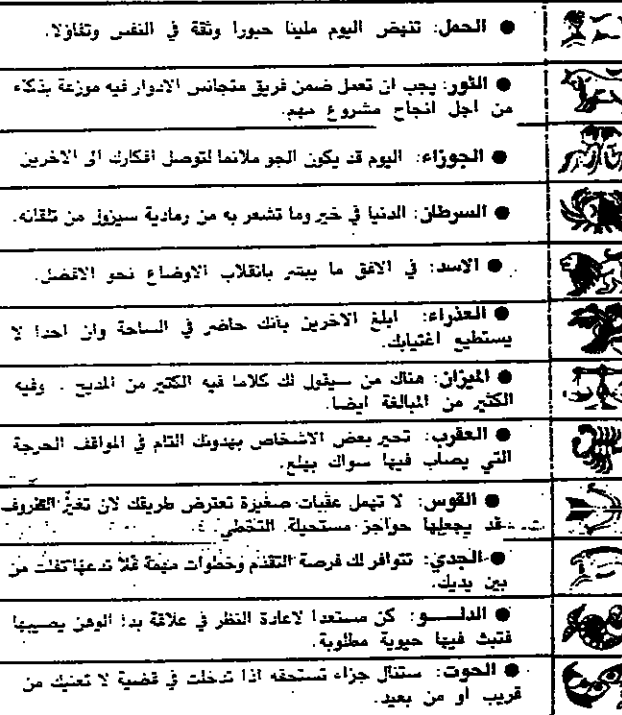 ● الحمل: تنهض اليوم مليئا حبورا وثقة في النفس وتفاؤلا.
● الثور: يجب ان تعمل ضمن فريق متجانس الادوار فيه موزعة بذكاء
من اجل انجاح مشروع مهم.
● الجوزاء: اليوم قد يكون الجو ملائما لتوصل افكارك الى الاخرين
● السرطان: الدنيا في خير وما تشعر به من رمادية سيزول من تلقائه.
● الاسد: في الافق ما يبشر بانقلاب الاوضاع نحو الافضل.
● العذراء: ابلغ الاخرين بأنك حاضر في الساحة وان احدا لا
يستطيع اغتيابك.
● الميزان: هناك من سيقول لك كلاما فيه الكثير من المديح . وفيه
الكثير من المبالغة ايضا.
● العقرب: تحير بعض الاشخاص بهدوئك التام في المواقف الحرجة
التي يصاب فيها سواك بهلع.
● القوس: لا تهمل عقبات صغيرة تعترض طريقك لان تغيّر الظروف
قد يجعلها حواجز مستحيلة التخطي.
● الجدي: تتوافر لك فرصة التقدم وخطوات مهمة فلا تدعها تفلت من
بين يديك.
● الدلـــو: كن مستعدا لاعادة النظر في علاقة بدا الوهن يصيبها
فتبث فيها حيوية مطلوبة.
● الحوت: ستنال جزاء تستحقه اذا تدخلت في قضية لا تعنيك من
قريب او من بعيد.